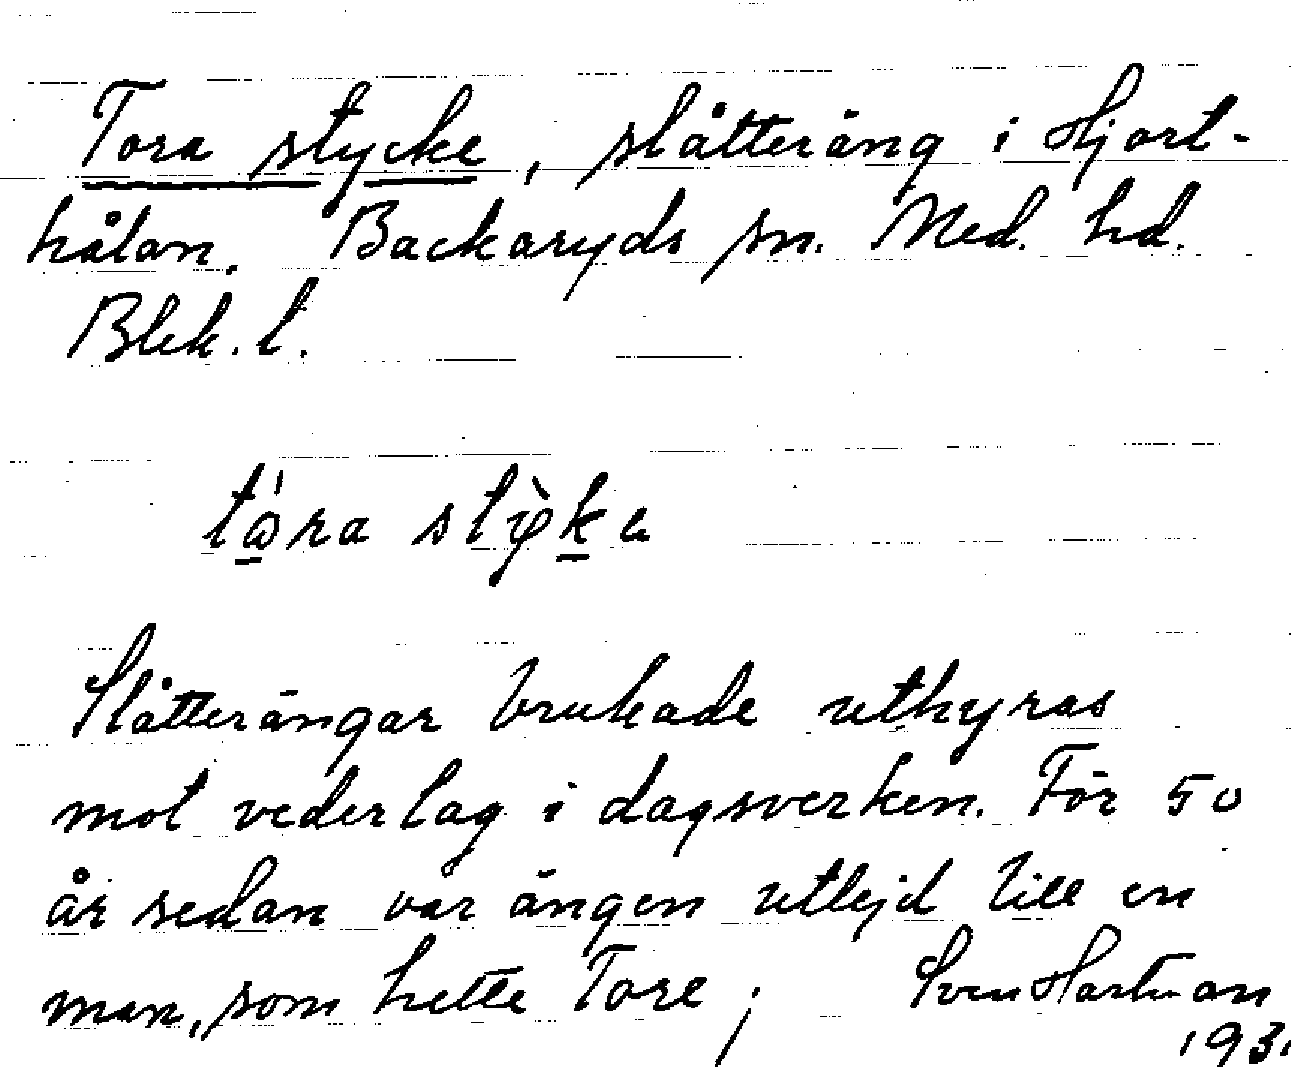 Tora stycke, slåtteräng i Hjort-
hålan. Backaryds sn. Med. hd.
Blek. l.
tώ̲ra stỳk̲e
Slåtterängar brukade uthyras
mot vederlag i dagsverken. För 50
år sedan var ängen utlejd till en
man, som hette Tore; Sven Hartman
193